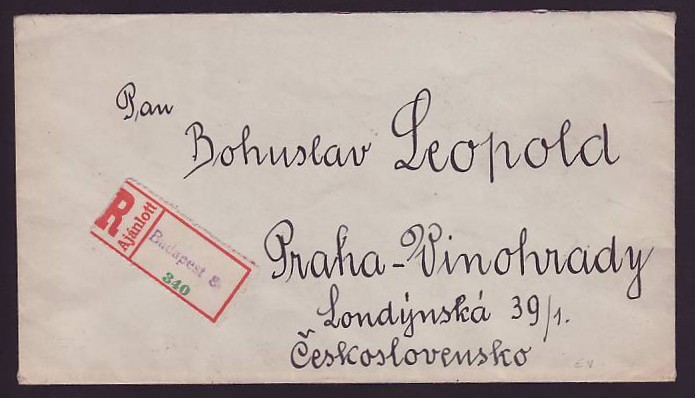 Pan
Bohuslav Leopold
R Ajánlott
Budapest 8
340
Praha-Vinohrady
Londýnská 39/1.
Československo